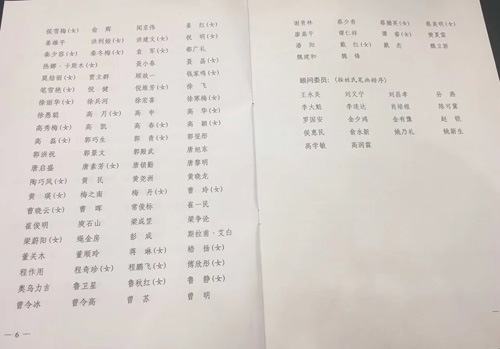 侯雪梅(女) 俞 熙 闻京伟 姜 红(女)
姜雄平 洪利娅(女) 洪建文(女) 祝 明(女)
秦少容(女) 秦冬梅(女) 袁 军(女) 都广礼
热娜·卡斯木(女) 聂小春 聂 晶(女)
莫结丽(女) 贾立群 顾政一 钱家鸣(女)
笔雪艳(女) 倪 健 倪维芳(女) 徐 飞
徐丽华(女) 徐兵河 徐宏喜 徐寒梅(女)
徐愚聪 高 月(女) 高 申 高 华(女)
高秀梅(女) 高 凯 高 春(女) 高 颖(女)
高 磊(女) 郭巧生 郭 青(女) 郭旻彤
郭洪祝 郭景文 郭殿武 唐旭东
唐启盛 唐素芳(女) 唐锁勤 唐黎明
陶巧凤(女) 黄 民 黄尧洲 黄晓龙
黄 瑛(女) 梅之南 梅 丹(女) 曹 玲(女)
曹晓云(女) 曹 晖 常俊标 崔一民
崔俊明 庾石山 梁成罡 梁争论
梁蔚阳(女) 绳金房 彭 成 斯拉甫·艾白
董关木 董顺玲 蒋 琳(女) 嵇 扬(女)
程作用 程奇珍(女) 程鹏飞(女) 傅欣彤(女)
奥乌力吉 鲁卫星 鲁秋红(女) 鲁 静(女)
曾令冰 曾令高 曾 苏 曾 明
— 6
谢贵林 蔡少青 蔡姗英(女) 蔡美明(女)
廖嵩平 谭仁祥 潘 蕾(女)
潘 阳 戴 红(女) 戴 忠 魏立新
魏建和 魏 锋
顾问委员:(按姓氏笔画排序)
王永炎 刘又宁 刘昌孝 孙 燕
李大魁 李连达 肖培根 陈可冀
罗国安 金少鸿 金有豫 赵 铠
侯惠民 俞永新 姚乃礼 姚新生
高学敏 高润霖